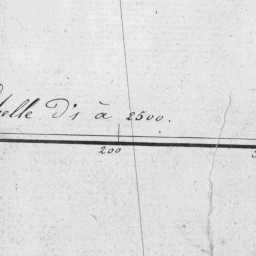 elle D'1 à 2500.
200